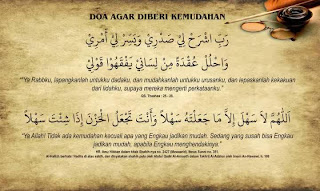 DOA AGAR DIBERI KEMUDAHAN
رَبِّ اشْرَحْ لِيْ صَدْرِيْ وَيَسِّرْ لِيْ أَمْرِيْ
وَاحْلُلْ عُقْدَةً مِنْ لِسَانِيْ يَفْقَهُوْا قَوْلِيْ
"Ya Rabbku, lapangkanlah untukku dadaku, dan mudahkanlah untukku urusanku, dan lepaskanlah kekakuan
dari lidahku, supaya mereka mengerti perkataanku."
QS. Thaahaa : 25 - 28.
اَللّٰهُمَّ لَا سَهْلَ إِلَّا مَا جَعَلْتَهُ سَهْلًا وَأَنْتَ تَجْعَلُ الْحَزْنَ إِذَا شِئْتَ سَهْلًا
"Ya Allah! Tidak ada kemudahan kecuali apa yang Engkau jadikan mudah. Sedang yang susah bisa Engkau
jadikan mudah, apabila Engkau menghendakinya."